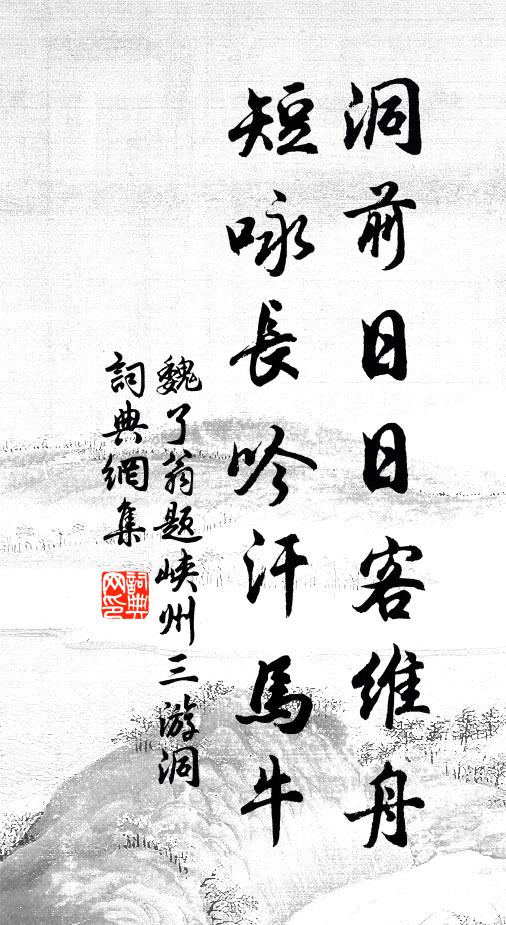 洞前日日客維舟
短咏長吟汗馬牛
魏了翁題峽州三游洞
詞典網集
詞典网印